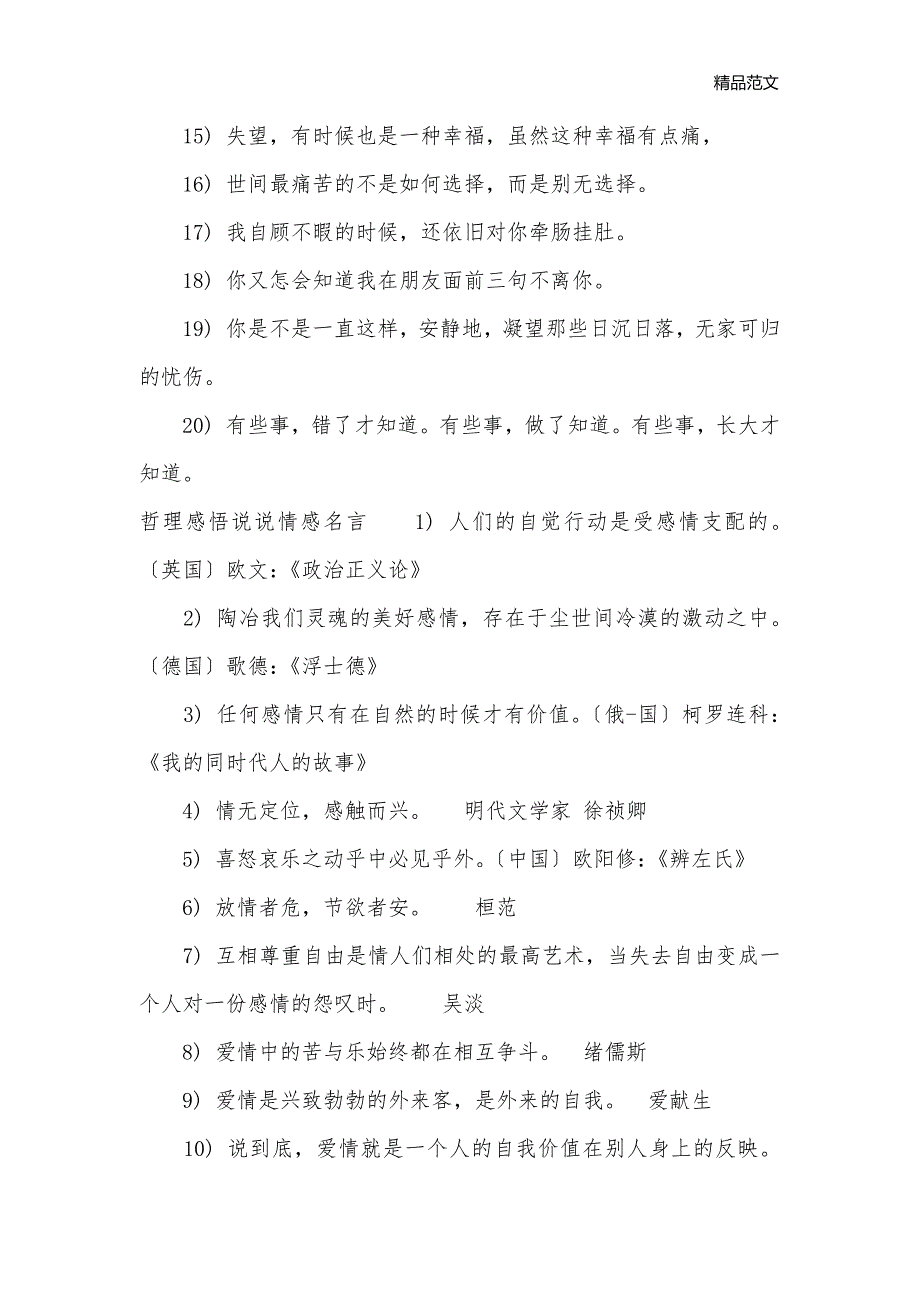 精品范文
15) 失望，有时候也是一种幸福，虽然这种幸福有点痛，
16) 世间最痛苦的不是如何选择，而是别无选择。
17) 我自顾不暇的时候，还依旧对你牵肠挂肚。
18) 你又怎会知道我在朋友面前三句不离你。
19) 你是不是一直这样，安静地，凝望那些日沉日落，无家可归
的忧伤。
20) 有些事，错了才知道。有些事，做了知道。有些事，长大才
知道。
哲理感悟说说情感名言 1) 人们的自觉行动是受感情支配的。
〔英国〕欧文：《政治正义论》
2) 陶冶我们灵魂的美好感情，存在于尘世间冷漠的激动之中。
〔德国〕歌德：《浮士德》
3) 任何感情只有在自然的时候才有价值。〔俄-国〕柯罗连科：
《我的同时代人的故事》
4) 情无定位，感触而兴。 明代文学家 徐祯卿
5) 喜怒哀乐之动乎中必见乎外。〔中国〕欧阳修：《辨左氏》
6) 放情者危，节欲者安。 桓范
7) 互相尊重自由是情人们相处的最高艺术，当失去自由变成一
个人对一份感情的怨叹时。 吴淡
8) 爱情中的苦与乐始终都在相互争斗。 绪儒斯
9) 爱情是兴致勃勃的外来客，是外来的自我。 爱献生
10) 说到底，爱情就是一个人的自我价值在别人身上的反映。